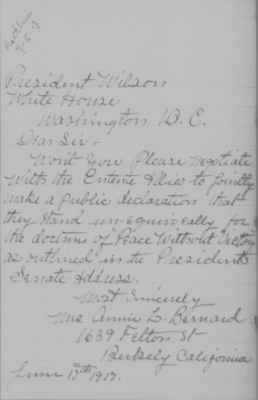 7-5-17
President Wilson
White House
Washington D. C.
Dear Sir:-
Won't you please negotiate
with the Entente Allies to jointly
make a public declaration that
they stand un-equivocally for
the doctrine of Peace Without Victory
as outlined in the President's
Senate Address.
Most Sincerely
Mrs Annie L. Bernard
1639 Felton St
Berkely California
June 17th 1917.